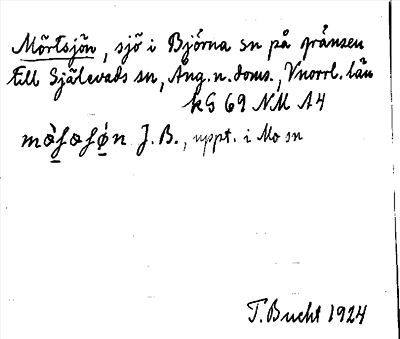 Mörtsjön, sjö i Björna sn på gränsen
till Själevads sn, Ång. n. doms., Vnorrl. län
kG 69 NM A4
J. B., uppt. i Mo sn
T. Bucht 1924